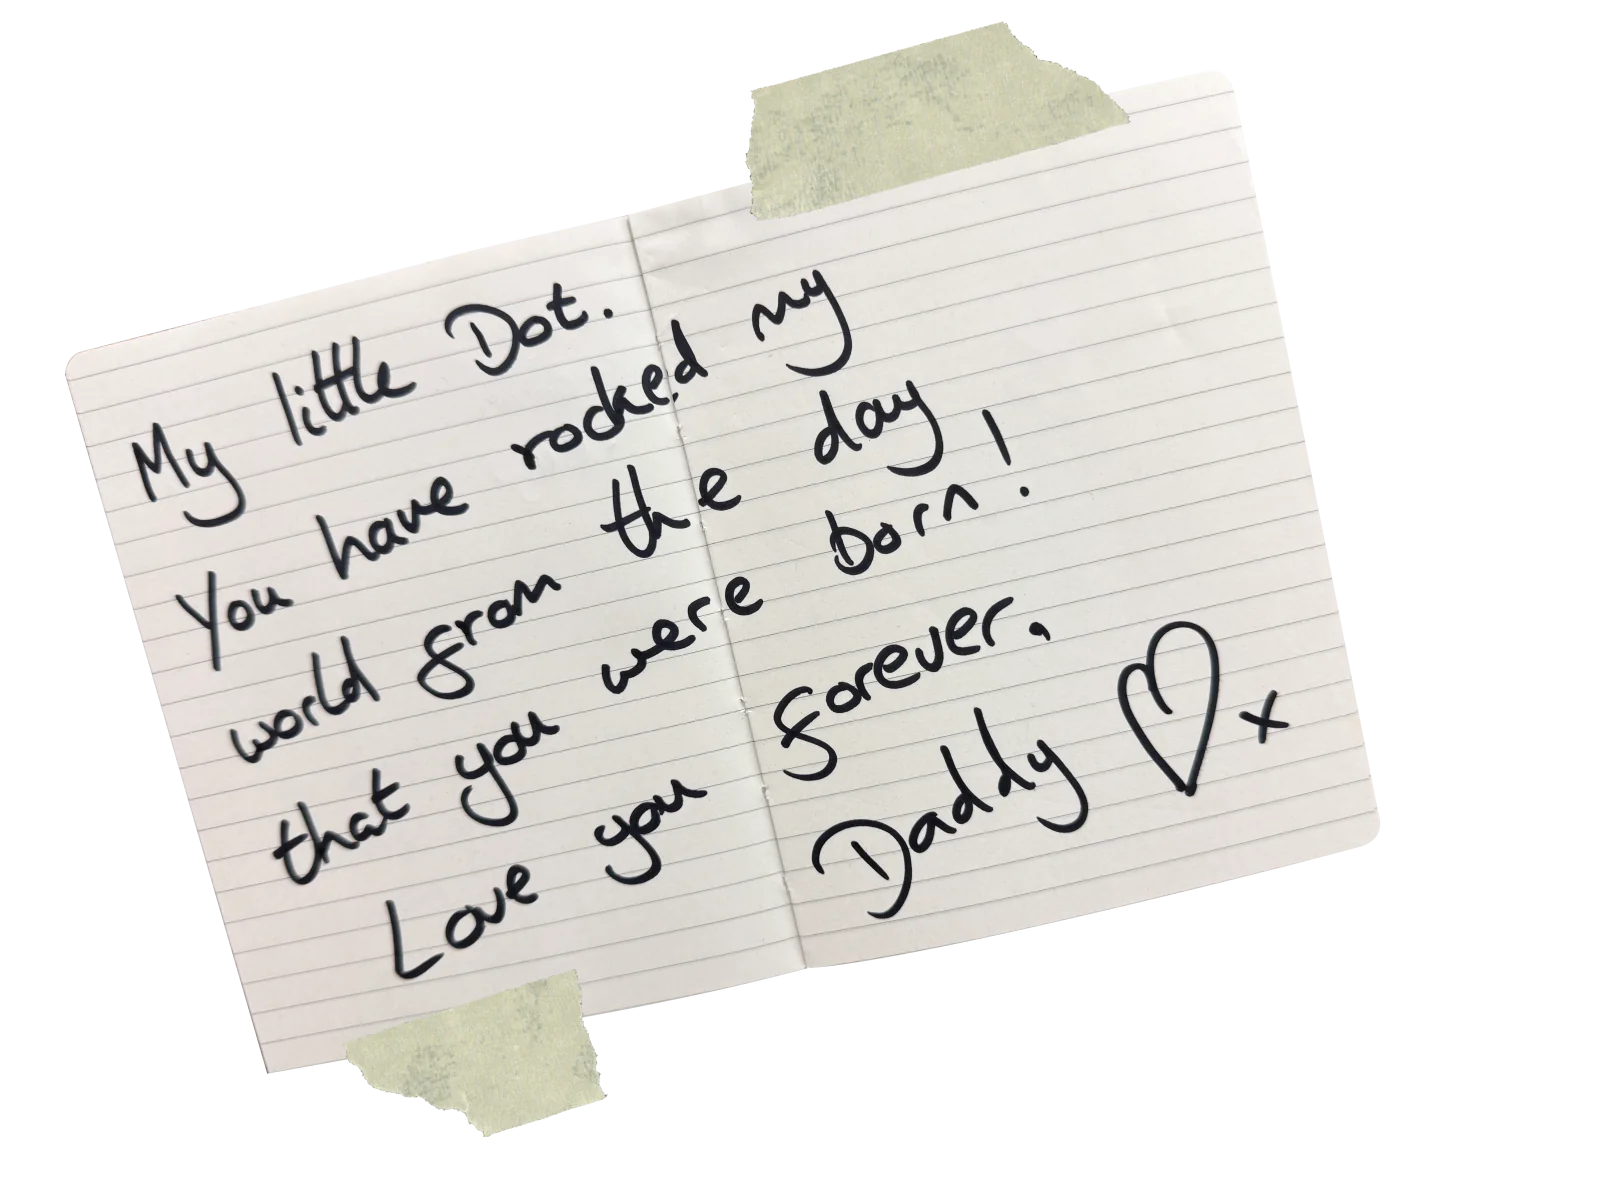 My little Dot.
You have rocked my
world from the day
that you were born!
Love you forever.
Daddy ♡ x